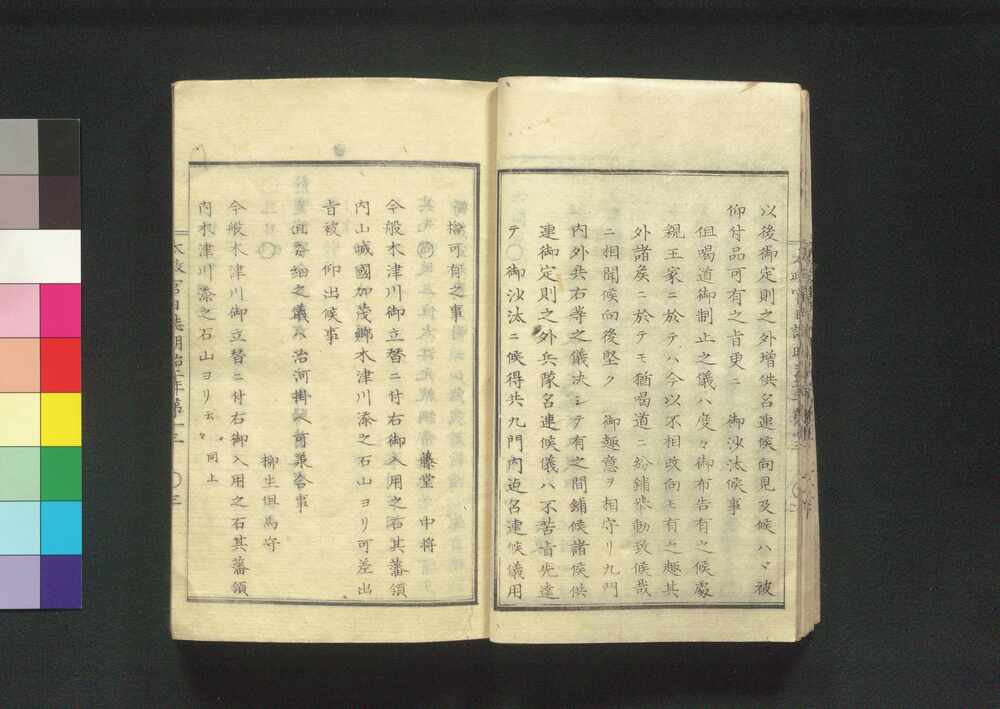 以後御定則之外増供名連候向見及候ハヾ被
仰付品可有之旨更ニ　御沙汰候事
但喝道御制止之儀ハ度々御布告有之候處
親王家ニ於テハ今以不相改向モ有之趣其
外諸矦ニ於テモ猶喝道ニ紛鋪挙動致候哉
ニ相聞候向後堅ク　御趣意ヲ相守リ九門
内外共右等之儀決シテ有之間鋪候諸候供
連御定則之外兵隊名連候儀ハ不苦旨先達
テ〇御沙汰ニ候得共九門内迄召連候儀用
捨可有之事
藤堂　中将
今般木津川御立替ニ付右御入用之石其藩領
内山城國加茂郷木津川添之石山ヨリ可差出
旨被　仰出候事
但委細之儀ハ治河掛ヘ可承合事
柳生但馬守
今般木津川御立替ニ付右御入用之石其藩領
内木津川添之石山ヨリ云々同上
太政官日誌明治二年第十三　〇三